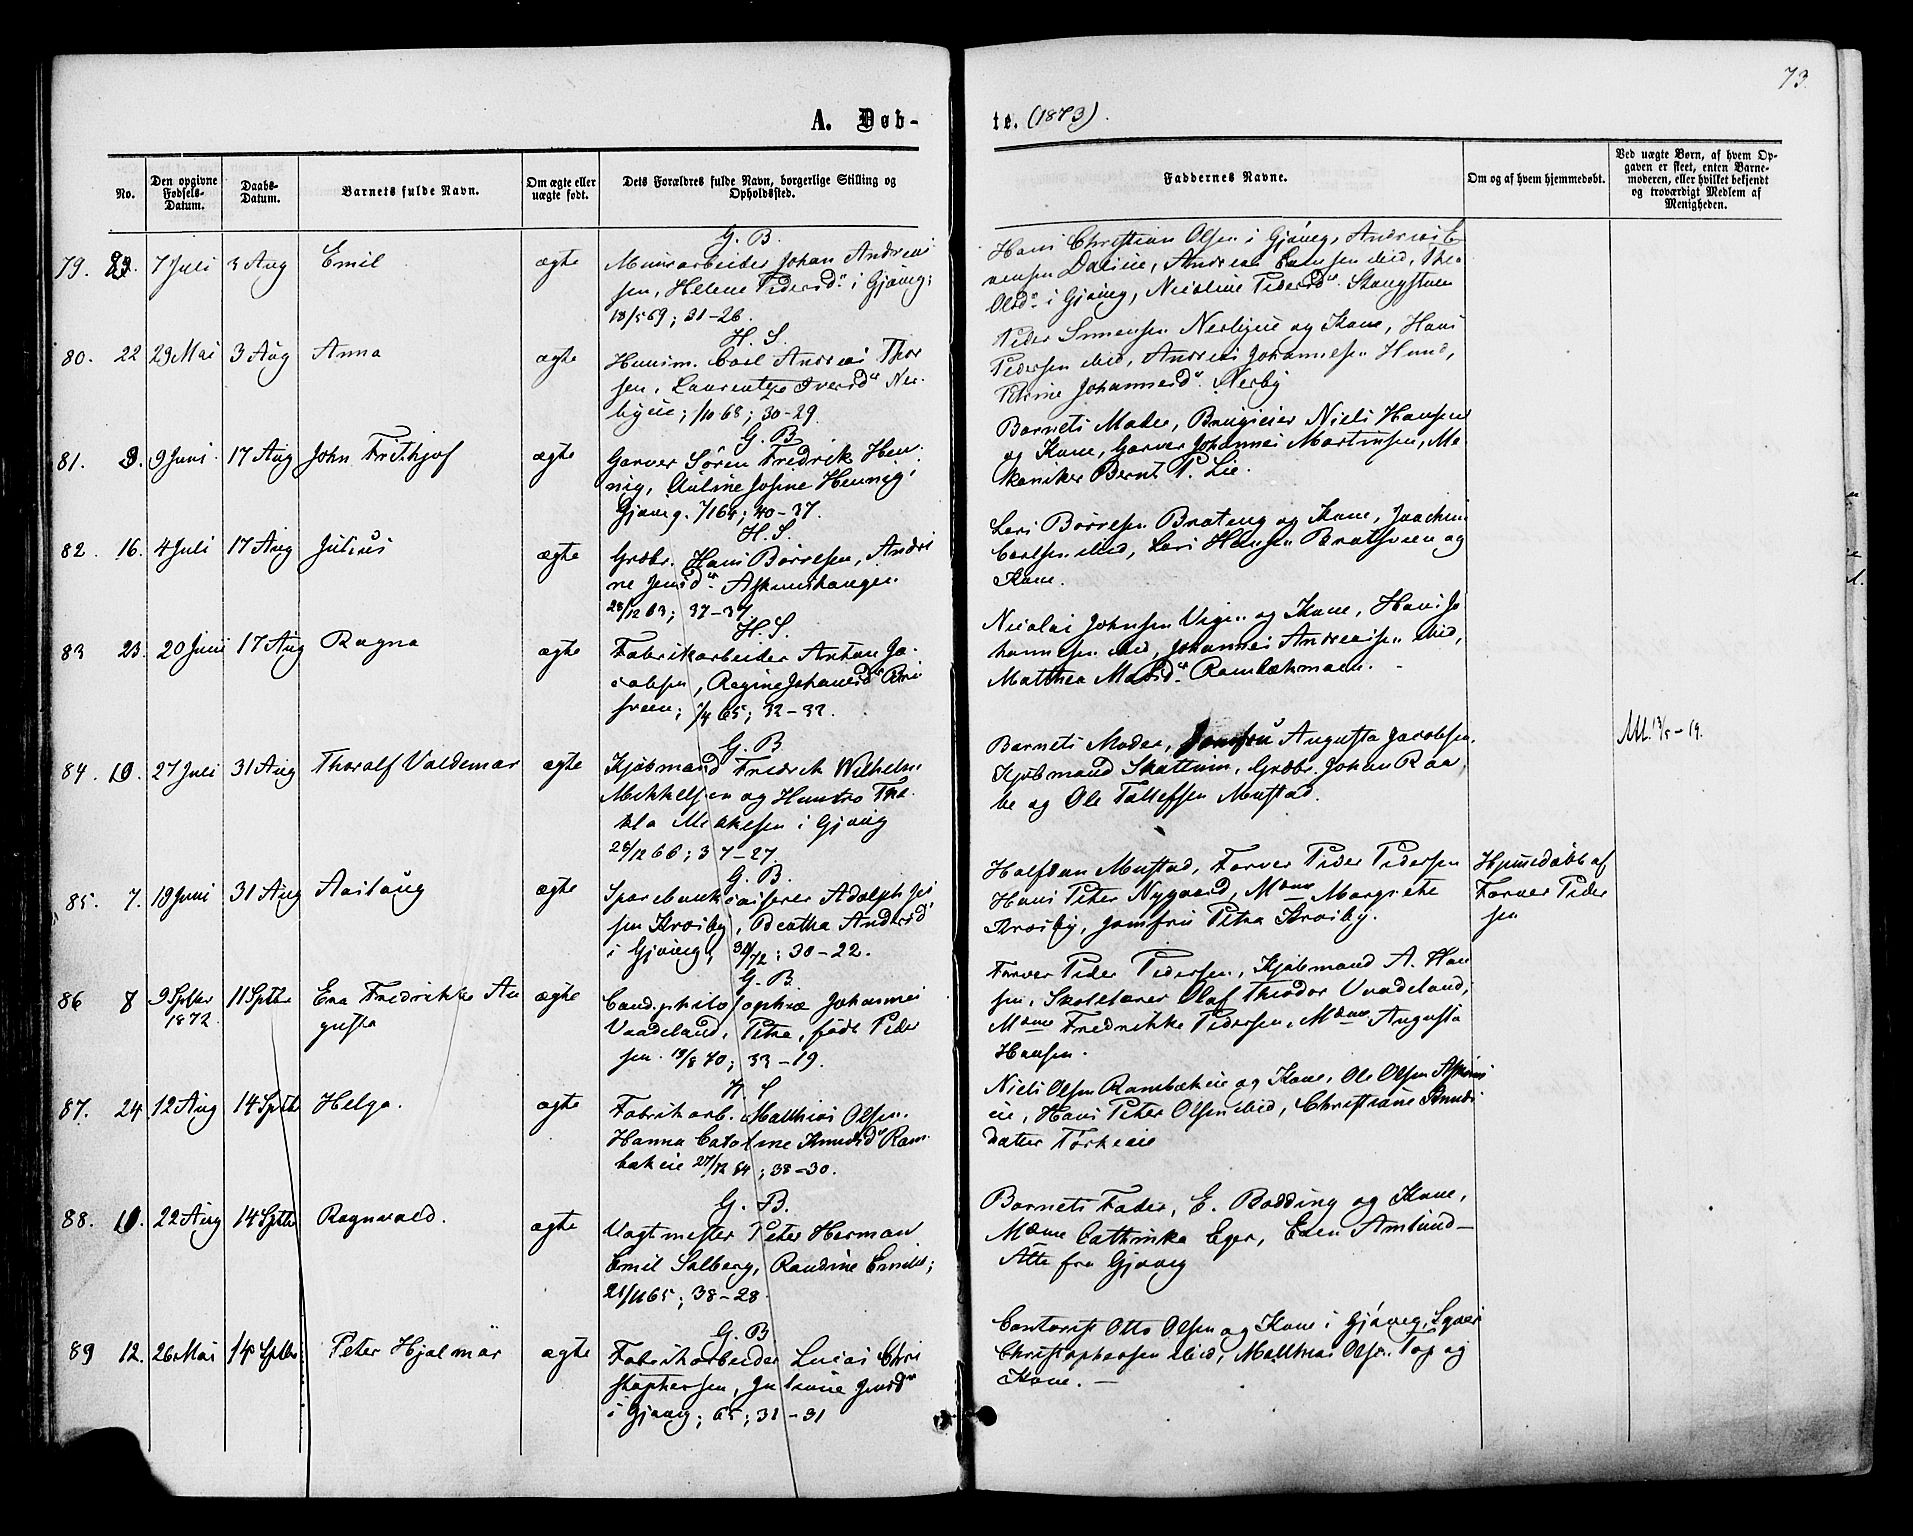 73
A. Døb-
te. (1873).
No.
Den opgivne Fødsels-Datum.
Daabs-Datum.
Barnets fulde Navn.
Om ægte eller uægte født.
Dets Forældres fulde Navn, borgerlige Stilling og Opholdssted.
Faddernes Navne.
Om og af hvem hjemmedøbt.
Ved uægte Børn, af hvem Op-
gaven er skeet, enten Barne-
moderen, eller hvilket bekjendt
og troværdigt Medlem af
Menigheden.
G. B.
79. 7 Juli 3 Aug Emil ægte Muurarbeider Johan Andreas
sen, Helene Pedersd. i Gjøvig;
18/5 69; 31-26.
Hans Christian Olsen i Gjøvig, Andreas
Dalsie, Andreas mid,
Olsd. i Gjøvig, Nicoline Pedersd. Stangstuen
H. S.
80. 22 29 Mai 3 Aug Anna ægte Huusm. Carl Andreas Thor
sen, Laurentze Iversd. Ner-
byeie; /10 68; 30-29.
Peder Simensen Nerbyeie og Kone, Hans
Pedersen ibid, Andreas Johannesen Hund,
Petrine Johannesd. Nerby
G. B.
81. 9 Juni 17 Aug John Frithjof ægte Garver Søren Fredrik Hen-
nig, Josine Hennig,
Gjøvig. 7/1 64; 40-37.
Barnets Moder, Brugseier Niels Hansen
og Kone, Garver Johannes Martinsen, Me-
kaniker Bernt P. Lie.
H. S.
82. 16. 4 Juli 17 Aug Julius ægte Grbr. Hans Børresen, Andri
ne Jensd. Askimshaugen
28/12 63; 37-37
Lars Børresen Brateng og Kone, Joachim
Carlsen ibid, Lars Hansen Bratsveen og
Kone.
H. S.
83 23. 20 Juni 17 Aug Ragna ægte Fabrikarbeider Anton Ja-
cobsen, Regine Johansd. Bra
sveen; /4 65; 32-32.
Nicolai Johnsen Vigen og Kone, Hans Jo
hannesen ibid, Johannes Andreassen ibid,
Mathea Madsd. Rambækmoen. -
G. B.
84. 10. 27 Juli 31 Aug Thoralf Valdemar ægte Kjøbmand Fredrik Wilhelm
Mikkelsen og Hustro The-
kla Mikkelsen i Gjøvig
28/12 66; 37-27.
Barnets Moder, Jomfru Augusta Jacobsen.
Kjøbmand Skattum, Grbr. Johan Raa
be og Ole Tollefsen Mustad.
M. 13/5-19.
G. B.
85. 7. 19 Juni 31 Aug Aaslaug ægte Sparebankkasserer Adolph Je
sen Krosby, Beatha Andersd.
i Gjøvig, 30/ 72; 30-22.
Halfdan Mustad, Farver Peder Pedersen
Hans Peter Nygaard, Mdme Margrethe
Krosby, Jomfru Petra Krosby.
Hjemmedøbt af
Farver Peder
sen
G. B.
86 8 9 Sptbr 1872. 11 Sptbr Eva Fredrikke Au
gusta ægte Cand. philosophiæ Johannes
Vaadeland, Petra, født Peder
sen. 19/8 70; 33-19.
Farver Peder Pedersen, Kjøbmand A. Han
sen, Skolelærer Olaf Theodor Vaadeland,
Mdme Fredrikke Pedersen, Mdme Augusta
Hansen.
H. S.
87. 24 12 Aug 14 Sptb Helga. ægte Fabrikarb. Mathias Olsen.
Hanna Caroline Knudsd. Ram-
bækeie 27/12 64; 38-30.
Niels Olsen Rambækeie og Kone, Ole Olsen
eie, Hans Peter Olsen ibid, Christiane Knuds
datter
G. B.
88. 10. 22 Aug 14 Sptbr Ragnvald. ægte Vagtmester Peter Herman
Emil Solberg, Randine Emilie;
21/11 65; 38-28.
Barnets Fader, E. Bødding og Kone,
Mdme Cathinka Eger, Eden Amlund-
Alle fra Gjøvig
G. B.
89 12. 26 Mai 14 Sptbr Peter Hjalmar ægte Fabrikarbeider Lucas Chri
stophersen, Juliane Jensd.
i Gjøvig; 65; 31-31
Contorist Otto Olsen og Kone i Gjøvig,
Christophersen ibid, Mathias Olsen Top og
Kone. -